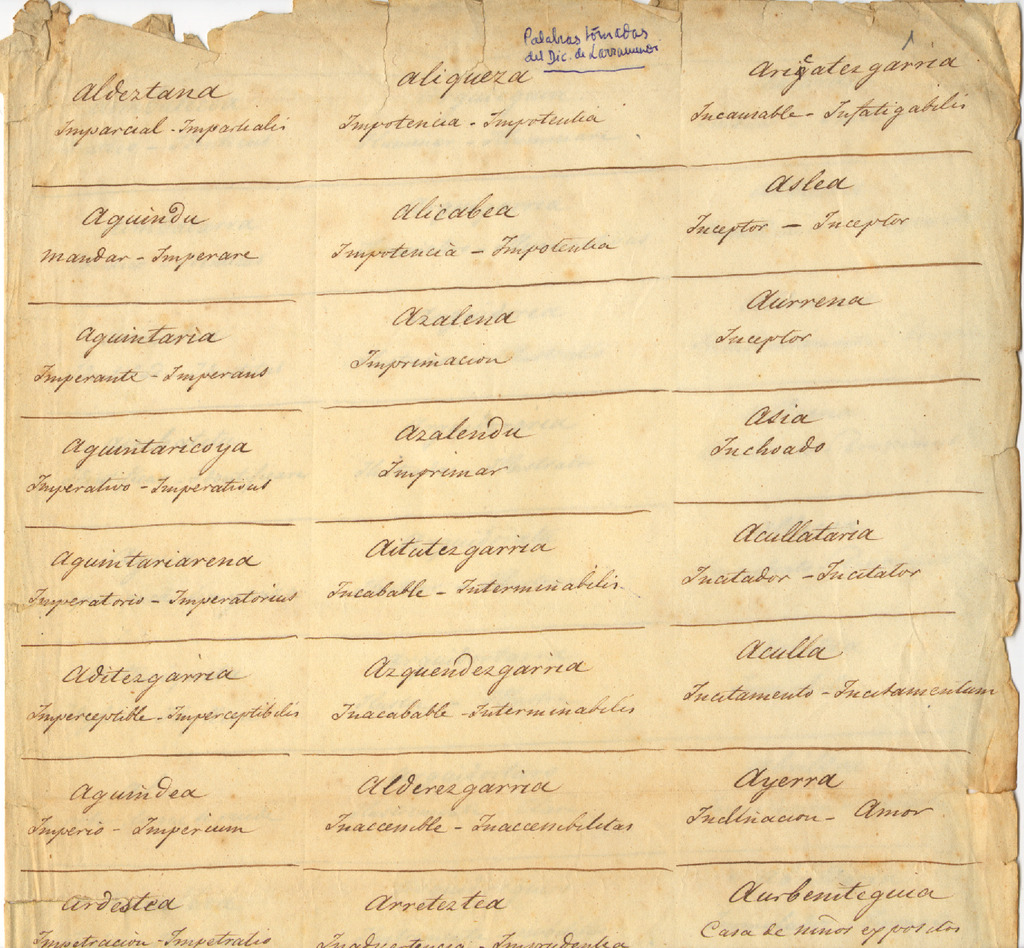 Palabras tomadas
del Dic. de Larramendi
1
Aldeztana
Imparcial - Impartialis
Aguindu
Mandar - Imperare
Aguintaria
Imperante - Imperans
Aguintaricoya
Imperativo - Imperativus
Aguintariarena
Imperatorio - Imperatorius
Aditezgarria
Imperceptible - Imperceptibilis
Aguindea
Imperio - Imperium
Ardestea
Impetracion - Impetratio
Aliqueza
Impotencia - Impotentia
Alicabea
Impotencia - Impotentia
Azalena
Imprimacion
Azalendu
Imprimar
Aitutezgarria
Incabable - Interminabilis
Azquendezgarria
Inacabable - Interminabilis
Alderezgarria
Inaccesible - Inaccessibilitas
Arreteztea
Inadvertencia - Imprudentia
Incansable - Infatigabilis
Aslea
Inceptor - Inceptor
Aurrena
Inceptor
Asia
Inchoado
Acullataria
Incitador - Incitator
Aculla
Incitamento - Incitamentum
Ayerra
Inclinacion - Amor
Aurbeniteguia
Casa de niños expositos